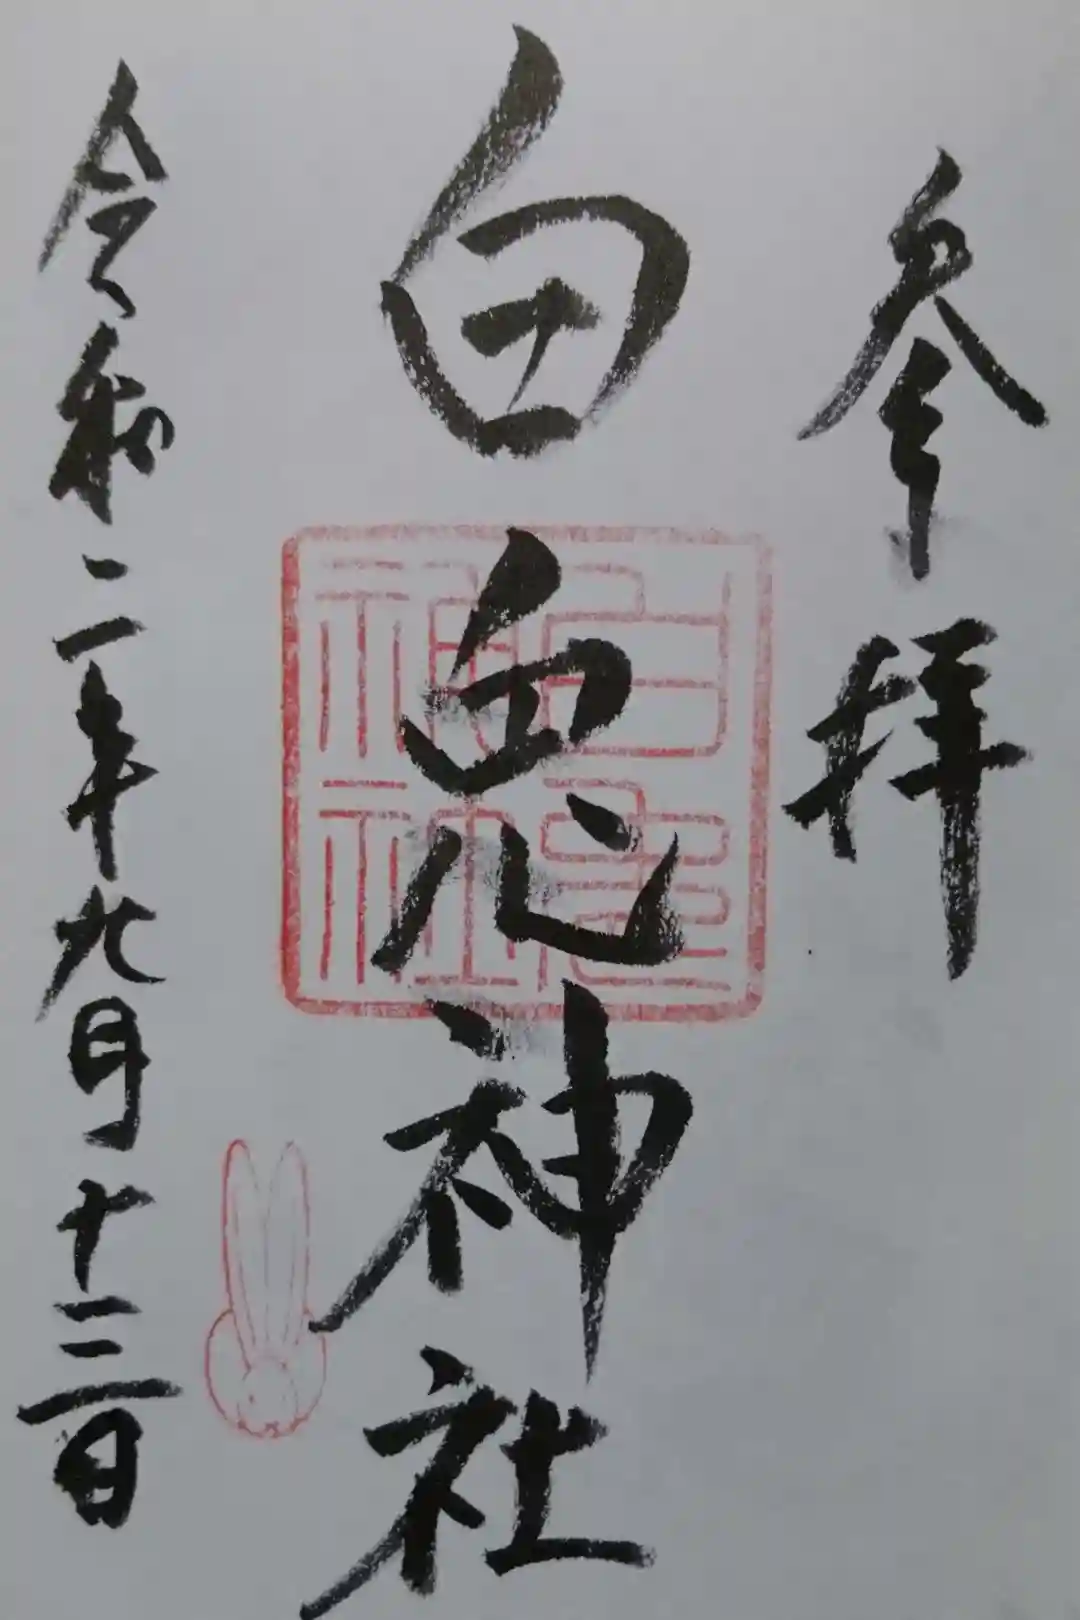 参拝
白兎神社
白兎神社
令和二年九月十三日